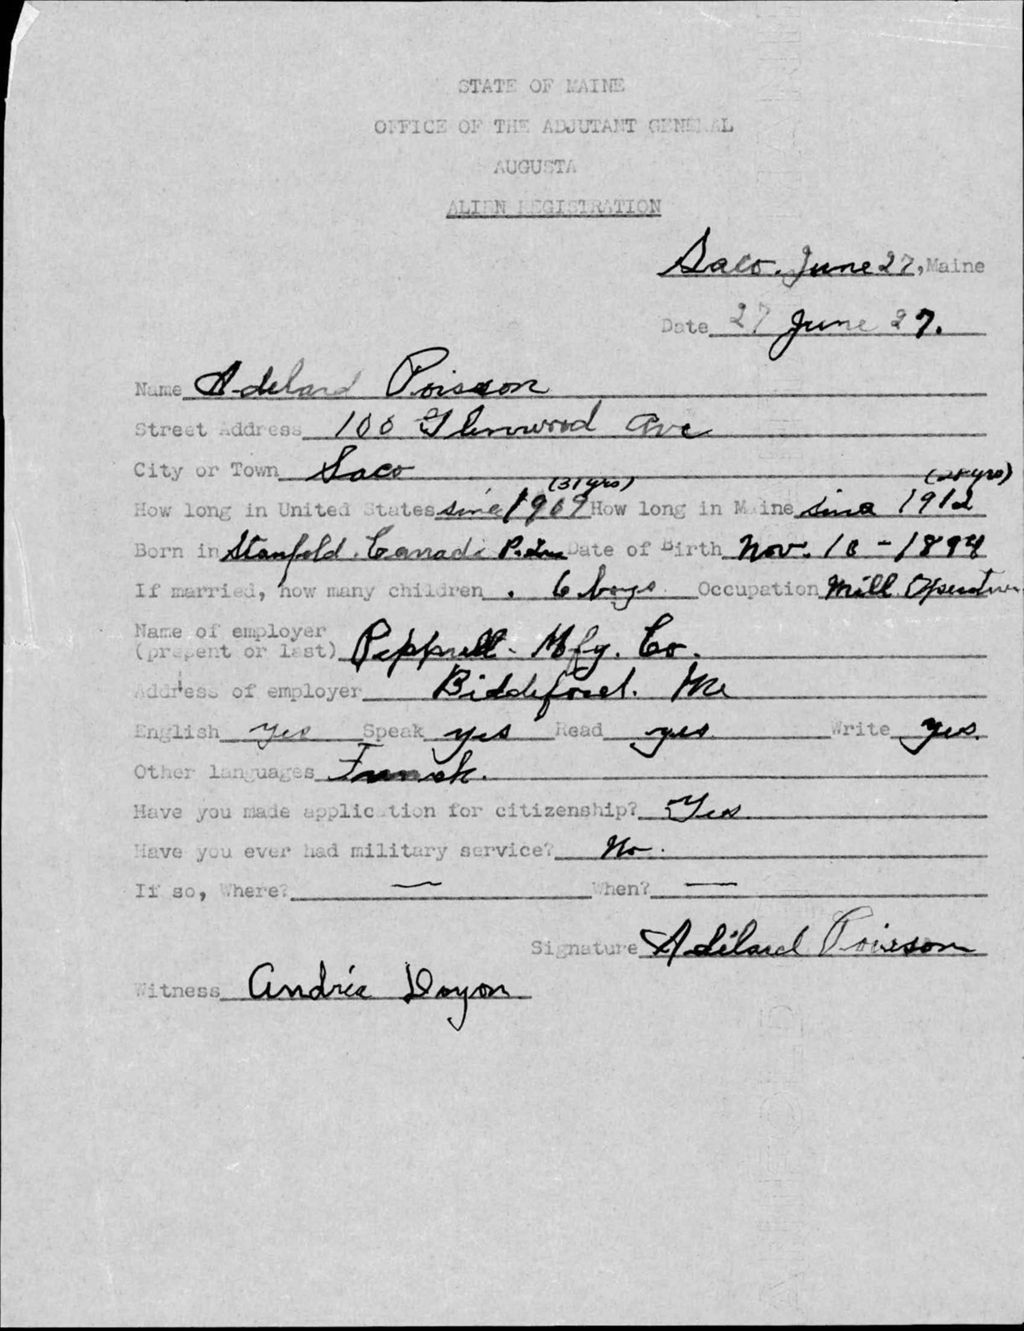 STATE OF MAINE
OFFICE OF THE ADJUTANT GENERAL
AUGUSTA
ALIEN REGISTRATION
Saco. June 27, Maine
Date 27 June 27.
Name Adelard Poisson
Street Address 100 Glenwood Ave
City or Town Saco
(31 yrs) (28 yrs)
How long in United States since 1909 How long in Maine since 1912
Born in Stanfold. Canada P. Date of Birth Nov. 10 - 1894
If married, how many children . 6 boys Occupation Mill Operative
Name of employer
(present or last) Pepperell Mfg. Co.
Address of employer Biddeford. Me
English Yes Speak yes Read yes Write yes.
Other languages French.
Have you made application for citizenship? Yes
Have you ever had military service? No.
If so, Where? — When? —
Signature Adélard Poisson
Witness Andréa Doyon